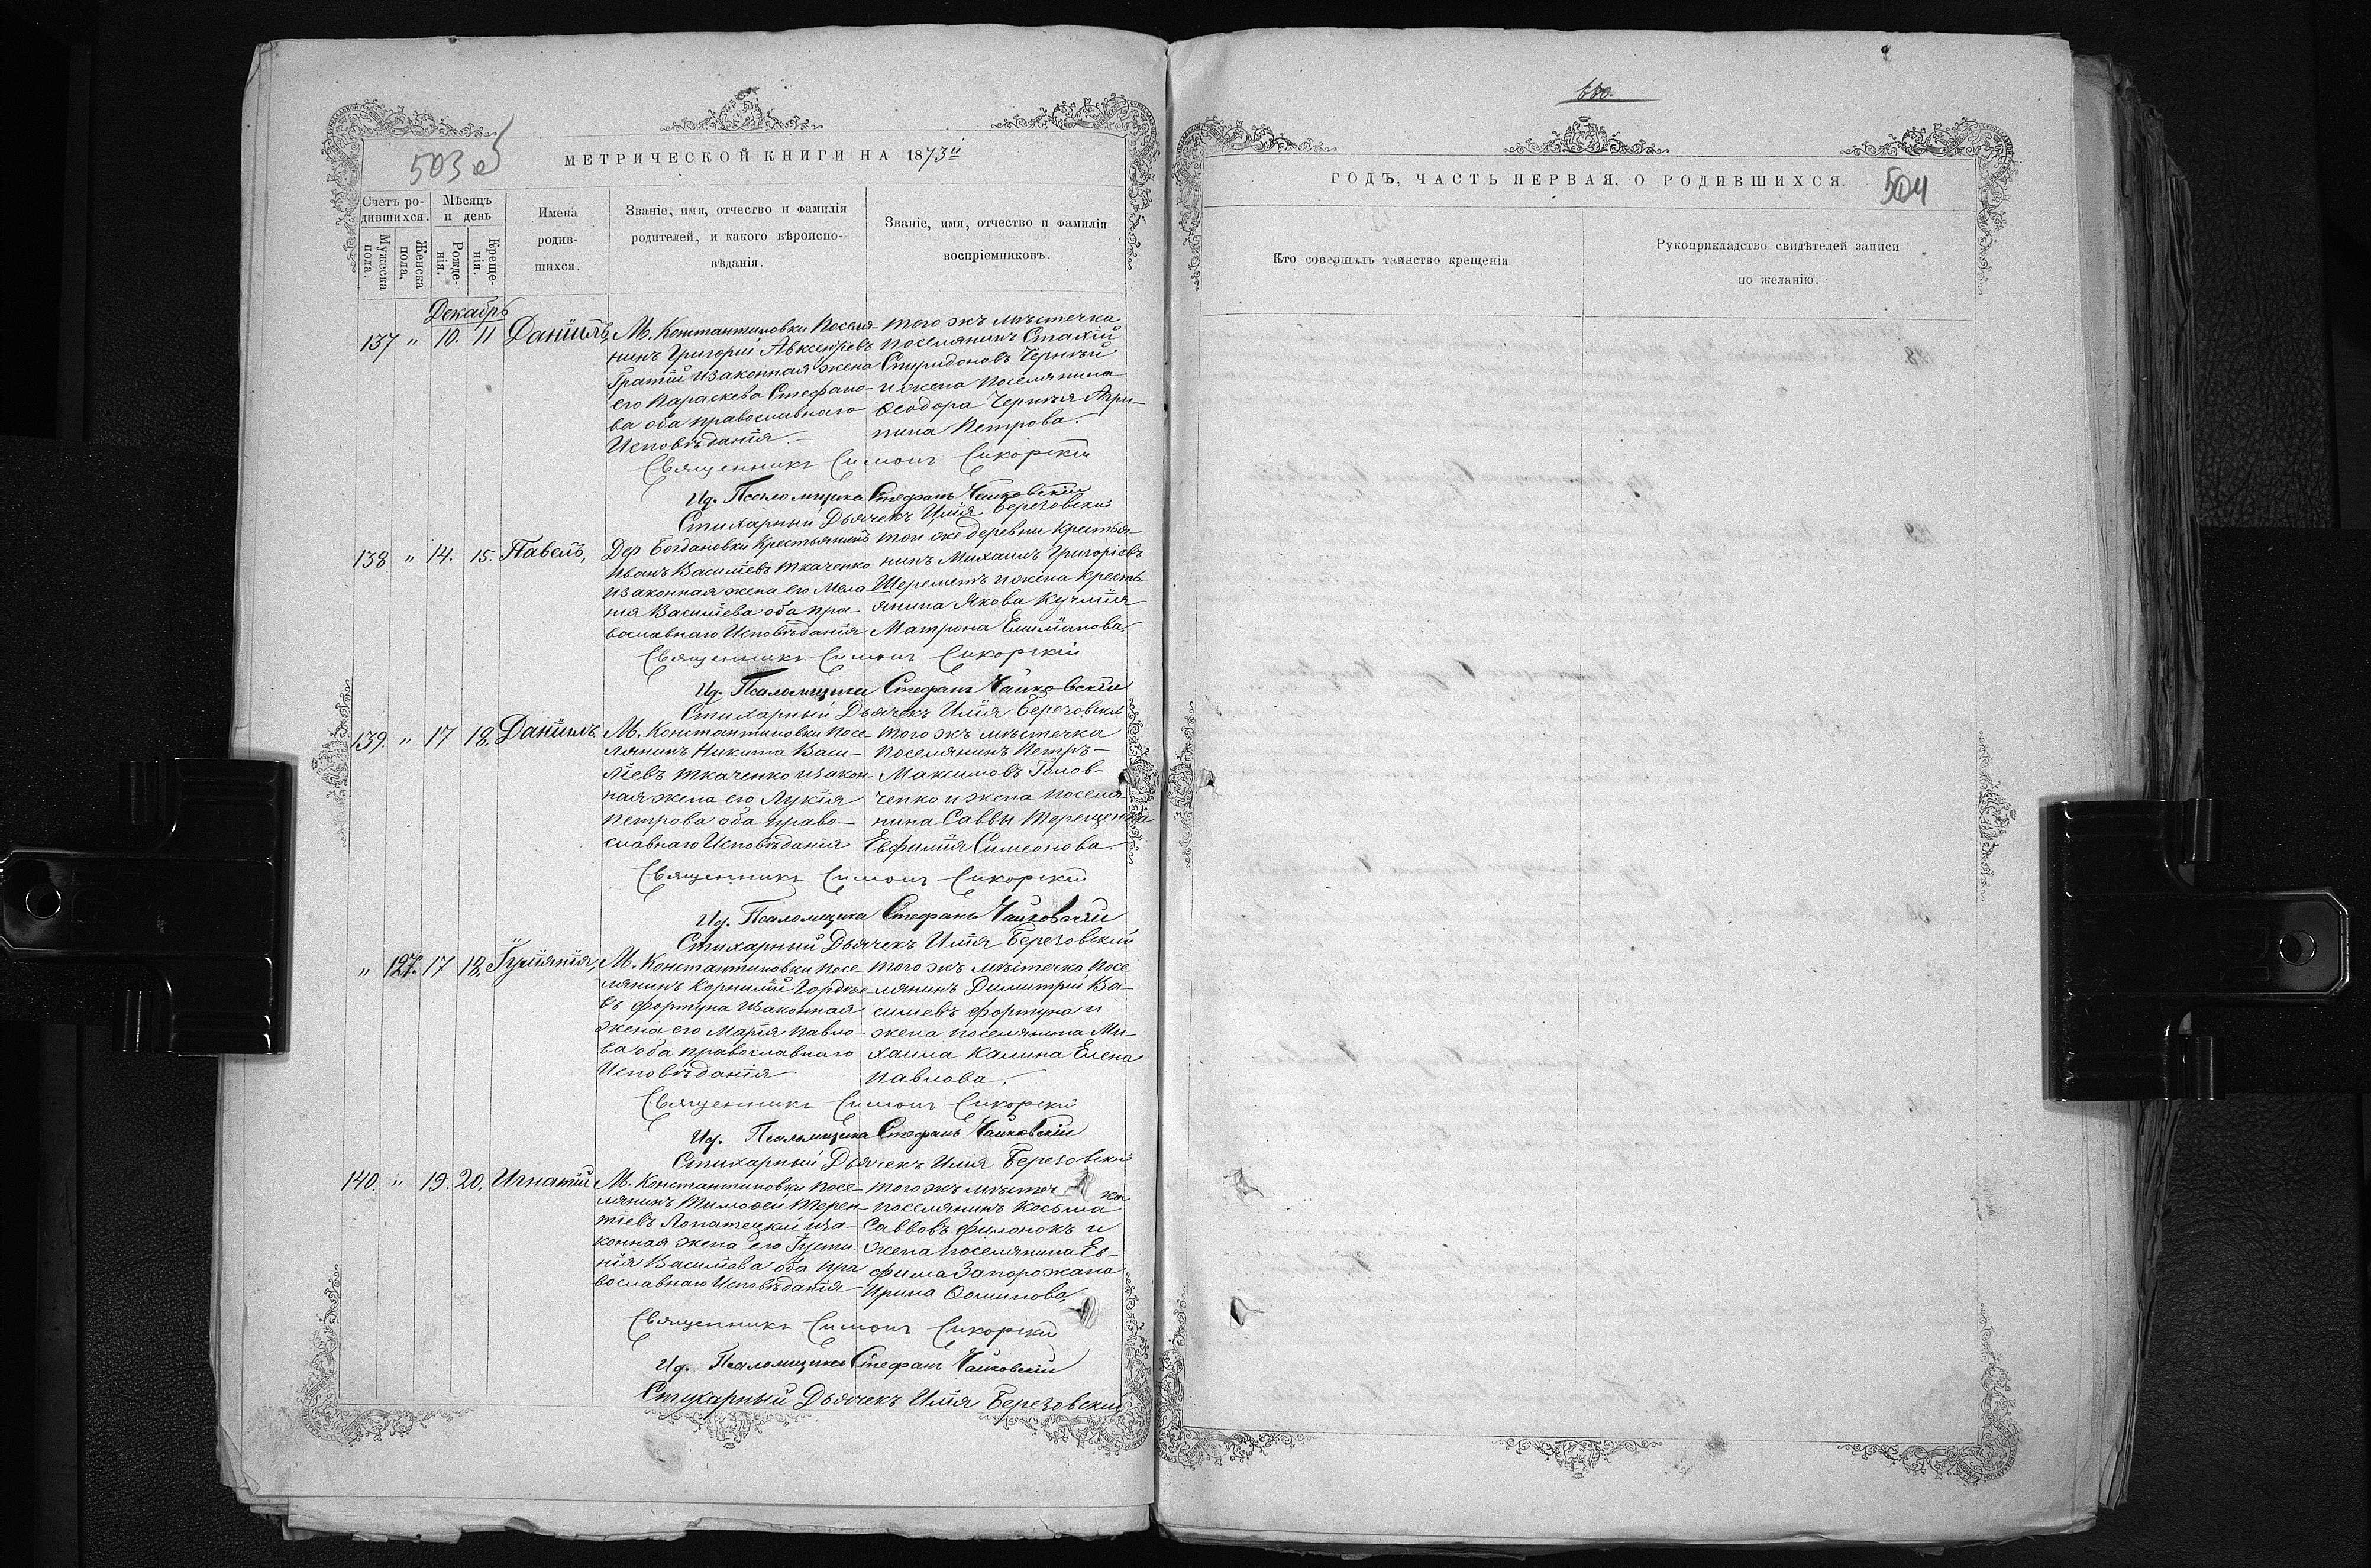 503 об
МЕТРИЧЕСКОЙ КНИГИ НА 1873й
Счетъ ро-
дившихся.
Мужеска
пола.
Женска
пола.
Мѣсяцъ
и день
Рожде-
нія.
Креще-
нія.
Имена
родив-
шихся.
Званіе, имя, отчество и фамилія
родителей, и какого вѣроиспо-
вѣданія.
Званіе, имя, отчество и фамилія
воспріемниковъ.
Декабрь
137 " 10. 11 Даніилъ,
М. Константиновки Поселя-
нинъ Григорій Авксентіевъ
Гратій и законная жена
его Параскева Стефано-
ва оба православнаго
Исповѣданія.
того жъ мѣстечка
поселянинъ Стахій
Спиридоновъ Черный
и жена поселянина
Ѳеодора Черныя Агри-
пина Петрова.
Священникъ Симонъ Сикорскій
Ид. Псаломщика Стефанъ Чайковскій
Стихарный Дьячекъ Илія Березовскій
138 " 14. 15. Павелъ,
Дер Богдановки Крестьянинъ
Иванъ Василіевъ Ткаченко
и законная жена его Мела
нія Василіева оба пра-
вославнаго Исповѣданія
той же деревни Крестья-
нинъ Михаилъ Григоріевъ
Шереметъ и жена кресть-
янина Якова Кучмія
Матрона Емиліанова.
Священникъ Симонъ Сикорскій
Ид. Псаломщика Стефанъ Чайковскій
Стихарный Дьячекъ Илія Березовскій
139. " 17 18. Даніилъ
М. Константиновки Посе-
лянинъ Никита Васи-
ліевъ Ткаченко и закон-
ная жена его Лукія
Петрова оба право-
славнаго Исповѣданія
того жъ мѣстечка
поселянинъ Петръ
Максимовъ Голов-
ченко и жена поселя
нина Саввы Терещенка
Евфимія Симеонова.
Священникъ Симонъ Сикорскій
Ид. Псаломщика Стефанъ Чайковскій
Стихарный Дьячекъ Илія Березовскій
" 127. 17 18. Іуліянія,
М. Константиновки посе-
лянинъ Корнилій Гордѣе-
въ Фортуна и законная
жена его Марія Павло-
ва оба православнаго
Исповѣданія
того жъ мѣстечка посе-
лянинъ Димитрій Ва-
силиевъ Фортуна и
жена поселянина Ми-
хаила Калина Елена
Павлова.
Священникъ Симонъ Сикорскій
Ид. Псаломщика Стефанъ Чайковскій
Стихарный Дьячекъ Илія Березовскій
140. " 19. 20. Игнатій
М. Константиновки посе-
лянинъ Тимоѳей Терен-
тіевъ Лопатецкій и за-
конная жена его Іусти-
нія Василіева оба пра
вославнаго Исповѣданія
того жъ мѣстеч ка
поселянинъ Косьма
Саввовъ Филонокъ и
жена поселянина Ев-
фима Запорожана
Ирина Ѳомина
Священникъ Симонъ Сикорскій
Ид. Псаломщика Стефанъ Чайковскій
Стихарный Дьячекъ Илія Березовскій
ГОДЪ, ЧАСТЬ ПЕРВАЯ, О РОДИВШИХСЯ.
504
Кто совершалъ таинство крещенія.
Рукоприкладство свидѣтелей записи
по желанію.